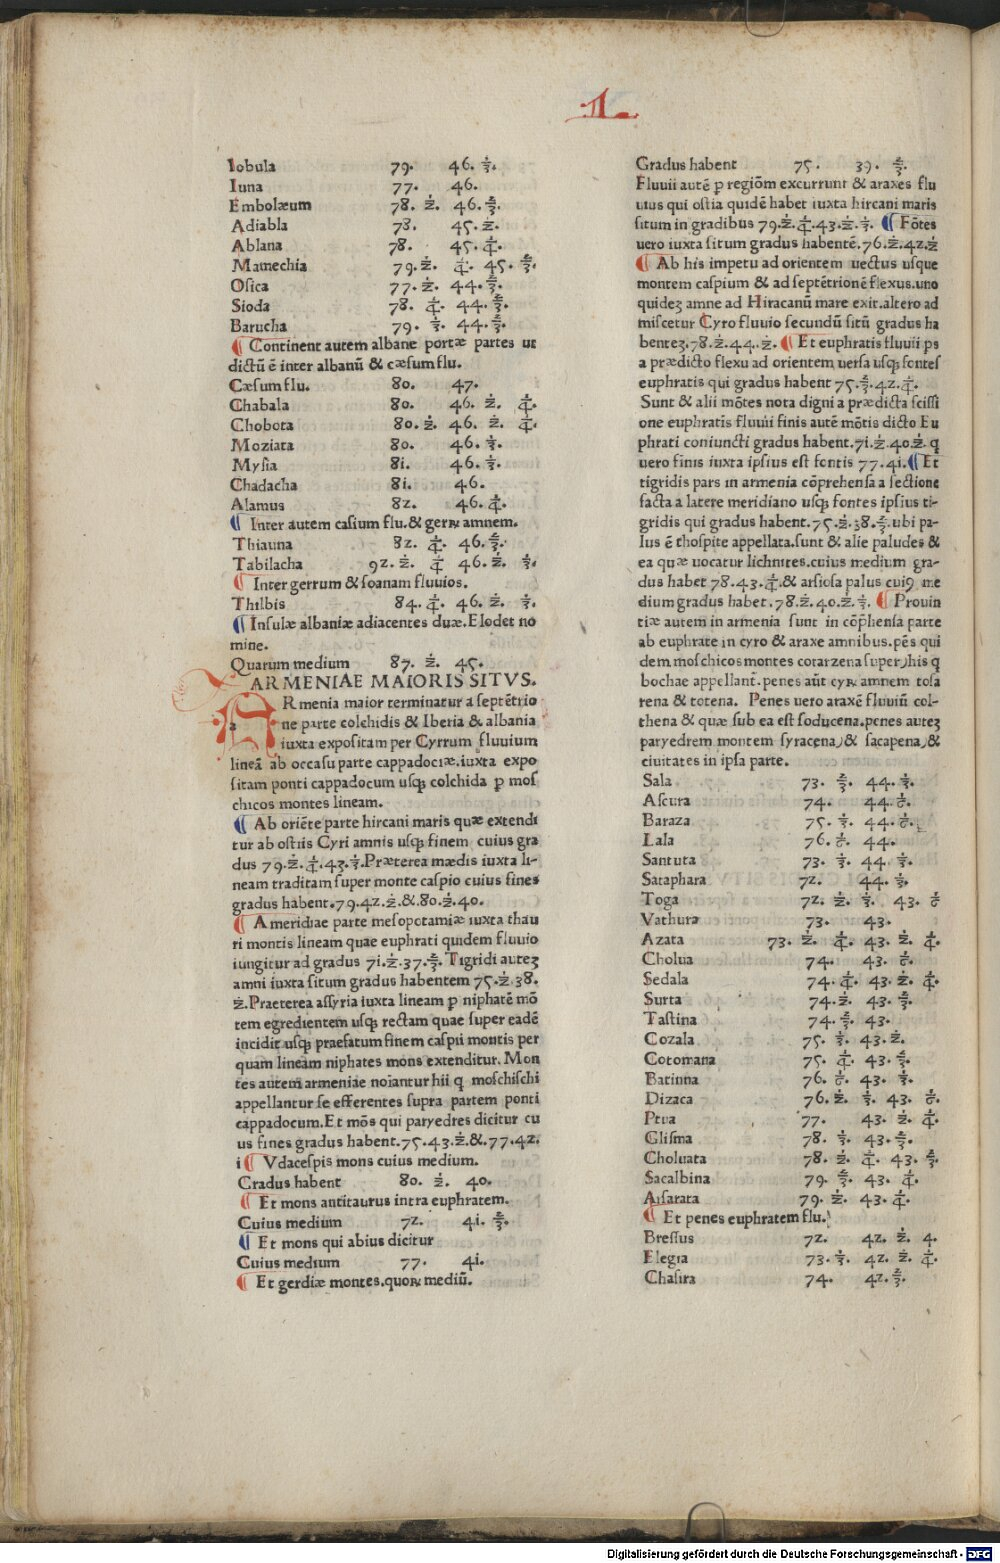 Iobula 79. 46. ⅓.
Iuna 77. 46.
Embolæum 78. ½. 46. ⅔.
Adiabla 78. 45. ½.
Ablana 78. 45. ¼.
Mamechia 79. ½. ¼. 45. ⅔.
Osica 77. ½. 44. ⅔.
Sioda 78. ¼. 44. ⅔.
Barucha 79. ⅓. 44. ⅔.
¶ Continent autem albane portæ partes ut
dictū ē inter albanū & cæsum flu.
Cæsum flu. 80. 47.
Chabala 80. 46. ½. ¼.
Chobota 80. ½. 46. ½. ¼.
Moziata 80. 46. ⅓.
Mysia 81. 46. ⅓.
Chadacha 81. 46.
Alamus 82. 46. ¼.
¶ Inter autem casium flu. & gerꝝ amnem.
Thiauna 82. ¼. 46. ⅔.
Tabilacha 92. ½. ¼ 46. ½. ⅓.
¶ Inter gerrum & soanam fluuios.
Thilbis 84. ¼. 46. ½. ⅓.
¶ Insulæ albaniæ adiacentes duæ. Elodet no
mine.
Quarum medium 87. ½. 45.
ARMENIAE MAIORIS SITVS.
aRmenia maior terminatur a septētrio
ne parte colchidis & Iberia & albania
iuxta expositam per Cyrrum fluuium
lineā ab occasu parte cappadociæ.iuxta expo
sitam ponti cappadocum usqꝫ colchida ꝑ mos
chicos montes lineam.
¶ Ab oriēte parte hircani maris quæ extendi
tur ab ostiis Cyri amnis usqꝫ finem cuius gra
dus 79.½.¼.43.⅓.Præterea mædis iuxta li-
neam traditam super monte caspio cuius fines
gradus habent.79.42.½.&.80.½.40.
¶ A meridiae parte mesopotamiæ iuxta thau
ri montis lineam quae euphrati quidem fluuio
iungitur ad gradus 71.½.37.⅔.Tigridi auteꝫ
amni iuxta situm gradus habentem 75.½.38.
½.Praeterea assyria iuxta lineam ꝑ niphatē mō
tem egredientem usqꝫ rectam quae super eadē
incidit usqꝫ praefatum finem caspii montis per
quam lineam niphates mons extenditur. Mon
tes autem armeniae noiantur hii q moschischi
appellantur se efferentes supra partem ponti
cappadocum.Et mōs qui paryedres dicitur cu
us fines gradus habent.75.43.½.&.77.42.
i ¶ Vdacespis mons cuius medium.
Gradus habent 80. ½. 40.
¶ Et mons antitaurus intra euphratem.
Cuius medium 72. 41. ⅔.
¶ Et mons qui abius dicitur
Cuius medium 77. 41.
¶ Et gerdiæ montes.quoꝝ mediū.
Gradus habent 75. 39. ⅔.
Fluuii autē ꝑ regiōm excurrunt & araxes flu
uius qui ostia quidē habet iuxta hircani maris
situm in gradibus 79.½.¼.43.½.⅓. ¶ Fōtes
uero iuxta situm gradus habentē.76.½.42.½
¶ Ab his impetu ad orientem uectus usque
montem caspium & ad septētrionē flexus.uno
quideꝫ amne ad Hiracanū mare exit.altero ad
miscetur Cyro fluuio secundū sitū gradus ha
benteꝫ.78.½.44.½. ¶ Et euphratis fluuii ps
a prædicto flexu ad orientem uersa usqꝫ fontes
euphratis qui gradus habent 75.⅔.42.¼.
Sunt & alii mōtes nota digni a prædicta scissi
one euphratis fluuii finis autē mōtis dicto Eu
phrati coniuncti gradus habent.71.½.40.½. q
uero finis iuxta ipsius est fontis 77.41. ¶ Et
tigridis pars in armenia cōprehensa a sectione
facta a latere meridiano usqꝫ fontes ipsius ti-
gridis qui gradus habent.75.½.38.⅔.ubi pa-
lus ē thospite appellata.sunt & alie paludes &
ea quæ uocatur lichnites.cuius medium gra-
dus habet 78.43.¼.& arsiosa palus cuiꝰ me
dium gradus habet.78.½.40.½.⅓. ¶ Prouin
tiæ autem in armenia sunt in cōp̄hensa parte
ab euphrate in cyro & araxe amnibus.pēs qui
dem moschicos montes cotarzena super his q
bochae appellant̄.penes aūt cyꝝ amnem tosa
rena & totena. Penes uero araxē fluuiū col-
thena & quæ sub ea est soducena.penes auteꝫ
paryedrem montem syracena & sacapena &
ciuitates in ipsa parte.
Sala 73. ⅔. 44. ⅓.
Ascura 74. 44. ⅙.
Baraza 75. ⅓. 44. ⅙.
Lala 76. ⅙. 44.
Santuta 73. ⅓. 44. ⅓.
Sataphara 72. 44. ⅓.
Toga 72. ½. ⅓. 43. ⅙
Vathura 73. 43.
Azata 73. ½. ¼. 43. ½. ¼.
Cholua 74. 43. ⅙.
Sedala 74. ¼. 43. ½. ¼.
Surta 74. ½. 43. ⅔.
Tastina 74. ⅔. 43.
Cozala 75. ⅓. 43. ½.
Cotomana 75. ¼. 43. ⅔.
Batinna 76. ⅙. 43. ⅓.
Dizaca 76. ½. ⅓. 43. ⅙.
Ptua 77. 43. ½. ¼.
Glisma 78. ⅓. 43. ⅔.
Choluata 78. ½. ¼. 43. ⅔.
Sacalbina 79. ⅔. 43. ¼.
Arsarata 79. ½. 43. ¼.
¶ Et penes euphratem flu.
Bressus 72. 42. ½. 4.
Elegia 73. ⅓. 42. ½. ¼.
Chasira 74. 42. ⅔.
Digitalisierung gefördert durch die Deutsche Forschungsgemeinschaft - DFG